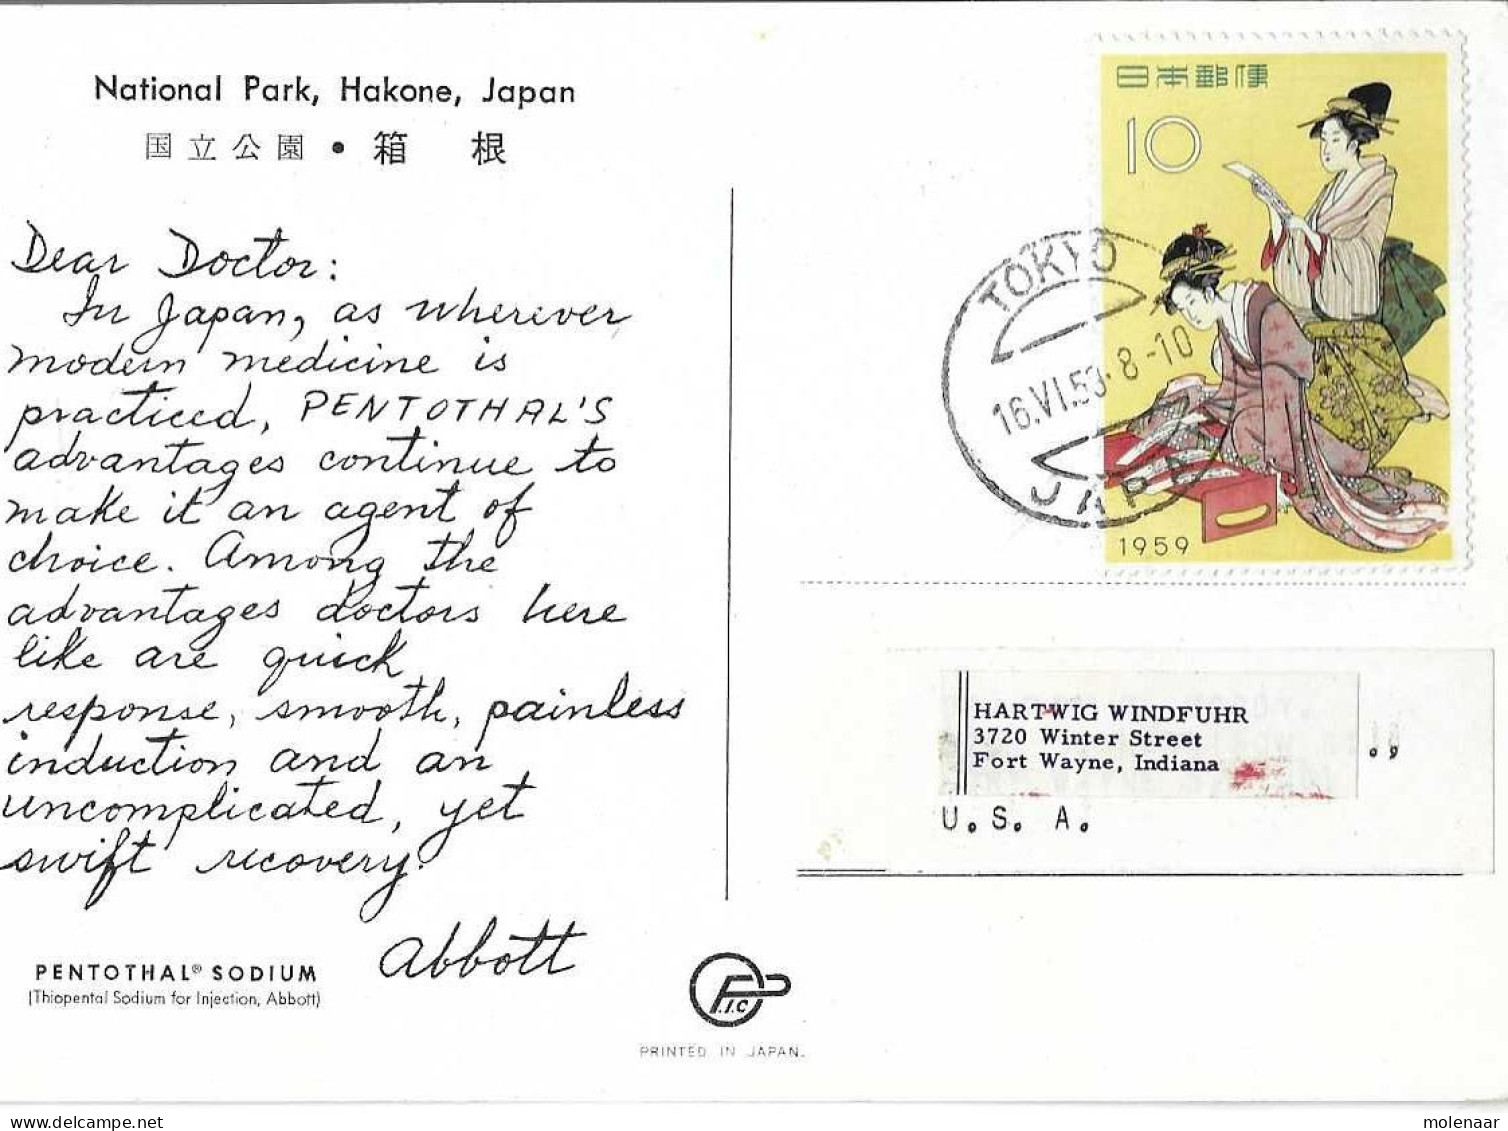 National Park, Hakone, Japan
国立公園・箱 根
Dear Doctor:
In Japan, as wherever
modern medicine is
practiced, PENTOTHAL'S
advantages continue to
make it an agent of
choice. Among the
advantages doctors here
like are quick
response, smooth, painless
induction and an
uncomplicated, yet
swift recovery.
Abbott
PENTOTHAL® SODIUM
(Thiopental Sodium for Injection, Abbott)
P.I.C
PRINTED IN JAPAN.
日本郵便
10
1959
TOKYO
16.VI.59. 8-10
JAPAN
HARTWIG WINDFUHR
3720 Winter Street
Fort Wayne, Indiana
U. S. A.
molenaar